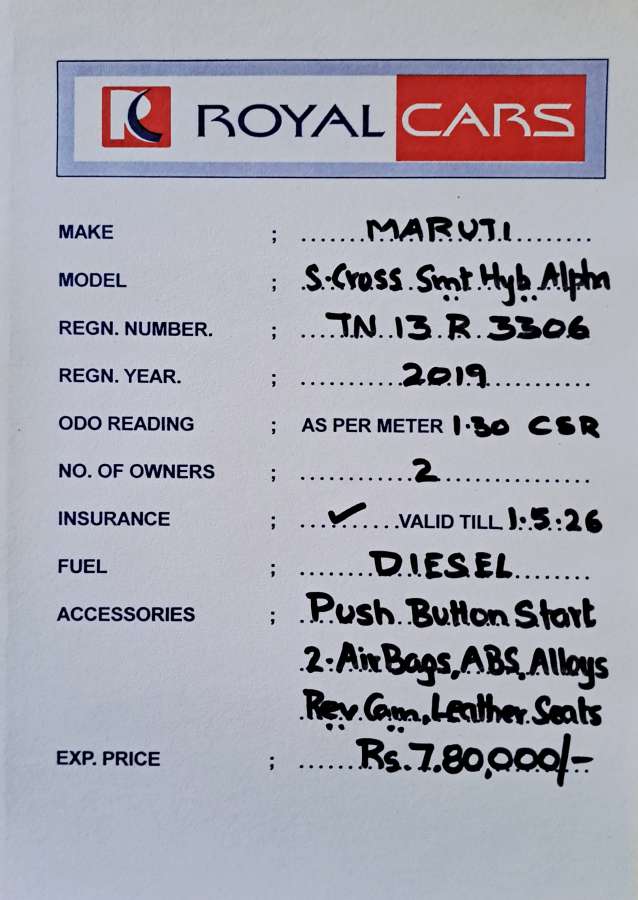 R ROYAL CARS
MAKE ; MARUTI
MODEL ; S-Cross Smt Hyb Alpha
REGN. NUMBER. ; TN 13 R 3306
REGN. YEAR. ; 2019
ODO READING ; AS PER METER 1.30 CSR
NO. OF OWNERS ; 2
INSURANCE ; ✓ VALID TILL 1.5.26
FUEL ; DIESEL
ACCESSORIES ; Push Button Start
2-Air Bags, ABS, Alloys
Rev Cam, Leather Seats
EXP. PRICE ; Rs.7.80,000/-